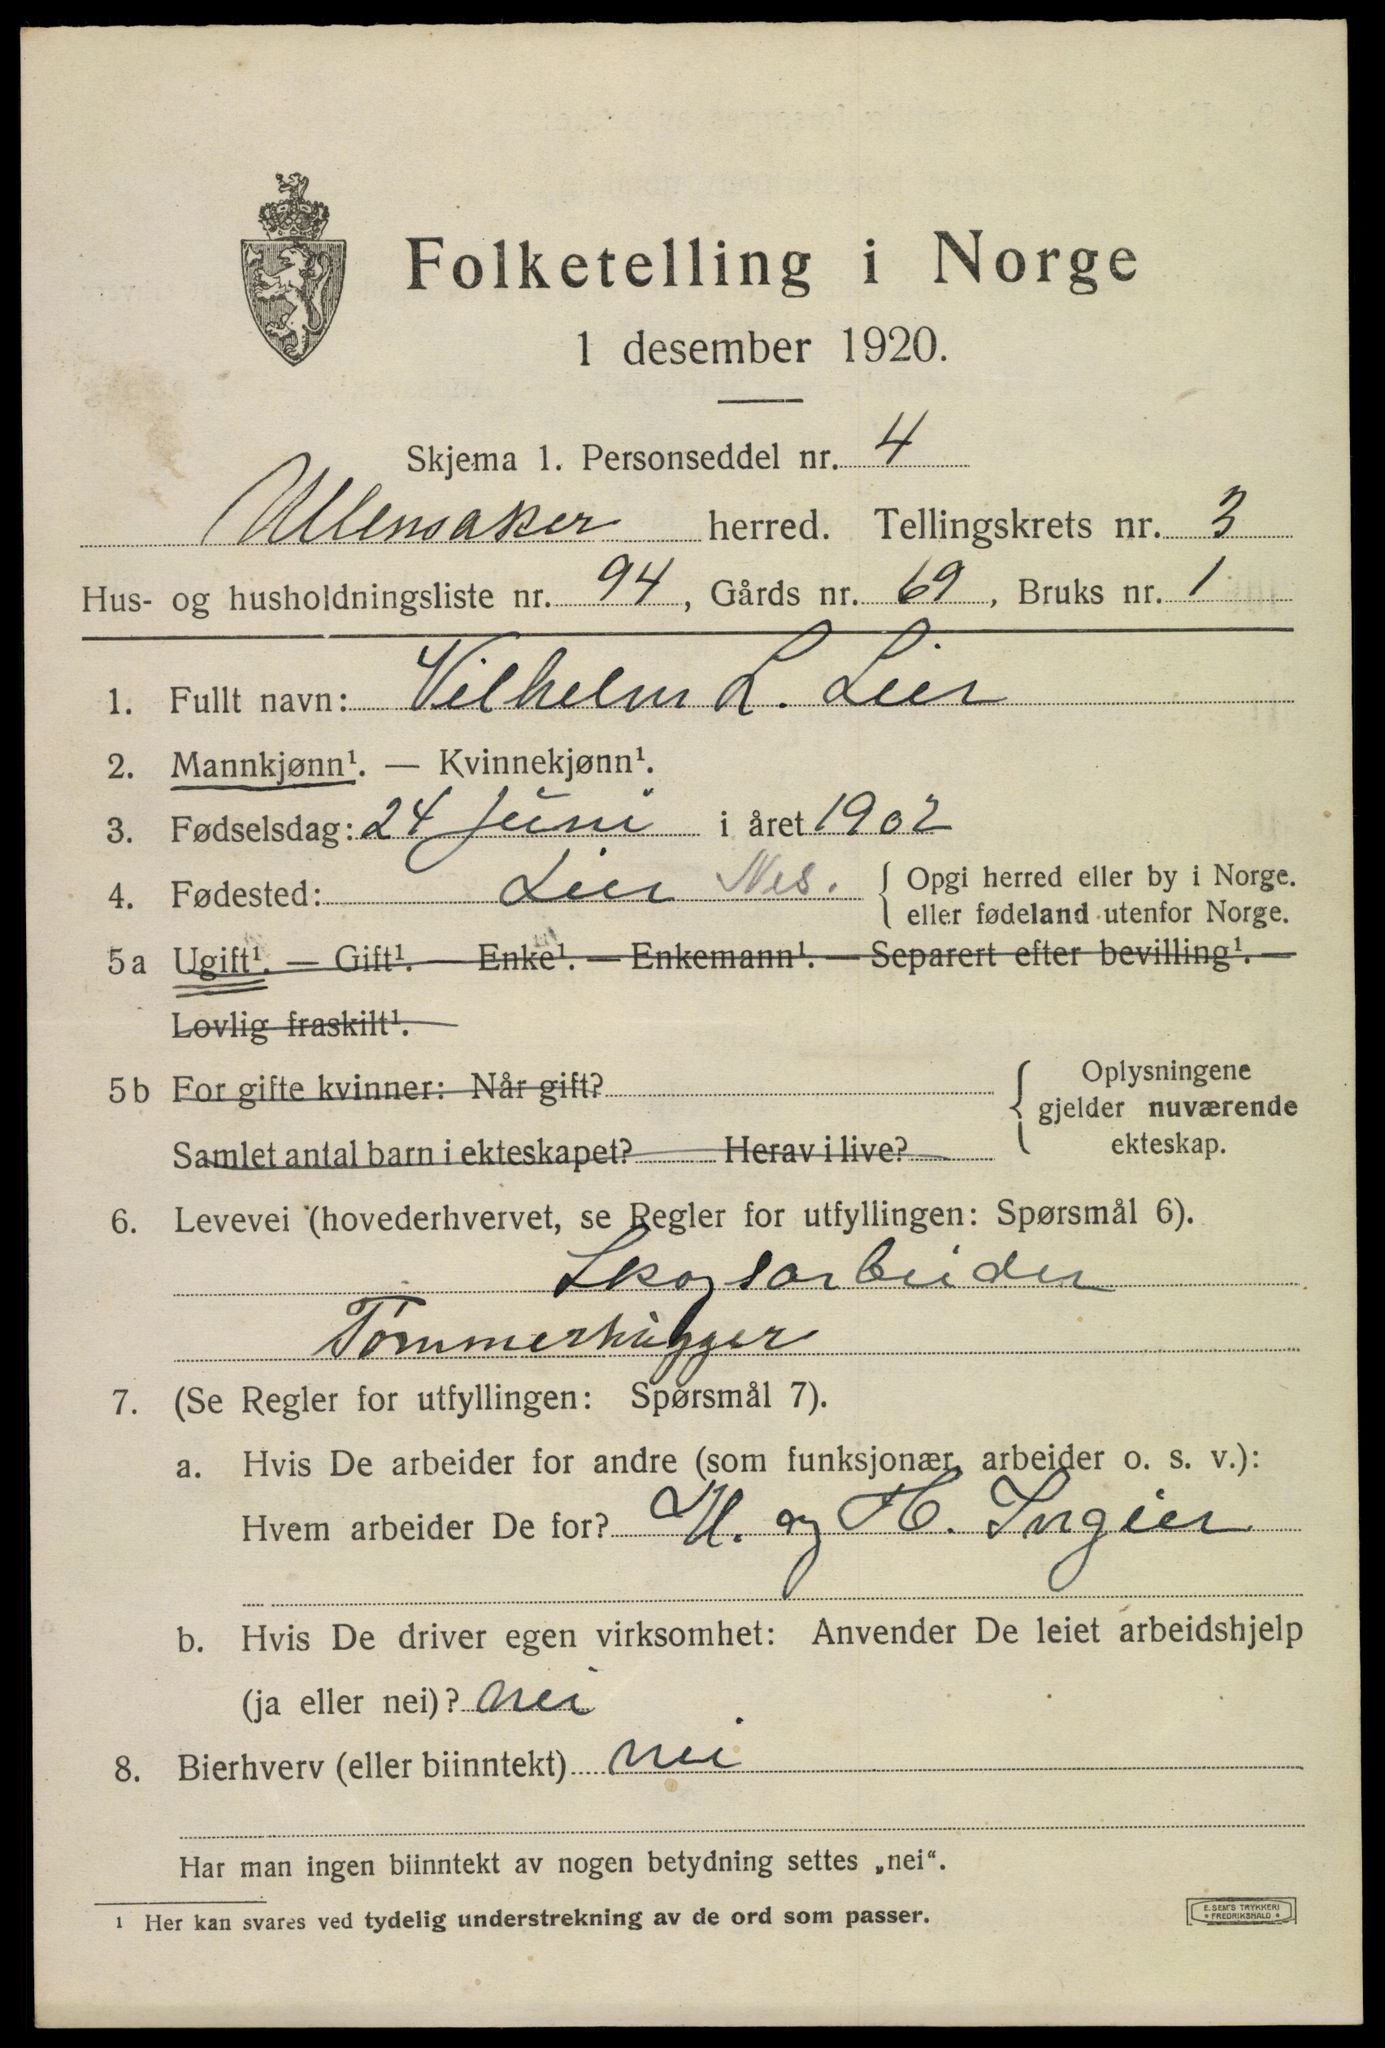 Folketelling i Norge
1 desember 1920.
Skjema 1. Personseddel nr. 4
Ullensaker herred. Tellingskrets nr. 3
Hus- og husholdningsliste nr. 94, Gårds nr. 69, Bruks nr. 1
1. Fullt navn: Vilhelm L. Lier
2. Mannkjønn¹. — Kvinnekjønn¹.
3. Fødselsdag: 24 Juni i året 1902
4. Fødested: Lier Nes. { Opgi herred eller by i Norge.
eller fødeland utenfor Norge.
5a Ugift¹. — Gift¹. — Enke¹. — Enkemann¹. — Separert efter bevilling¹. —
Lovlig fraskilt¹.
5b For gifte kvinner: Når gift?
Samlet antal barn i ekteskapet? Herav i live?
{ Oplysningene
gjelder nuværende
ekteskap.
6. Levevei (hovederhvervet, se Regler for utfyllingen: Spørsmål 6).
Skogsarbeider
Tømmerhugger
7. (Se Regler for utfyllingen: Spørsmål 7).
a. Hvis De arbeider for andre (som funksjonær, arbeider o. s. v.):
Hvem arbeider De for? M. og H. Ingier
b. Hvis De driver egen virksomhet: Anvender De leiet arbeidshjelp
(ja eller nei)? nei
8. Bierhverv (eller biinntekt) nei
Har man ingen biinntekt av nogen betydning settes „nei“.
¹ Her kan svares ved tydelig understrekning av de ord som passer.
E. SEM'S TRYKKERI
* FREDRIKSHALD *